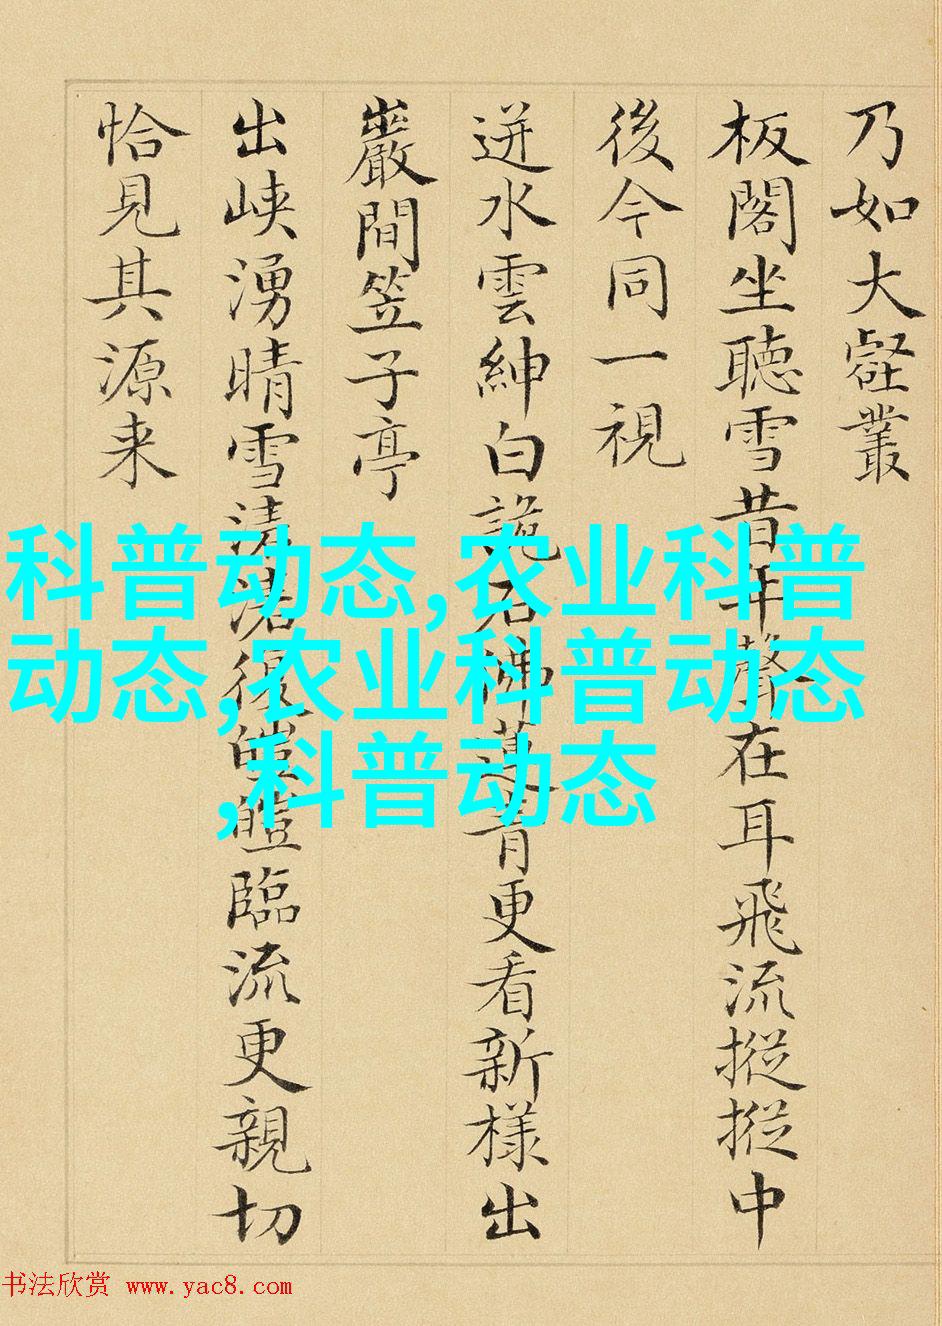 乃如大壑叢
板閣坐聽雪昔年聲在耳飛流摐摐中
後今同一視
迸水雲紳白詭石佛蓮青更看新樣出
巖間笠子亭
出峽湧晴雪清港很皚皚臨流更親切
恰見其源来
科普动态,农业科普
动态,农业科普动态
,科普动态
书法欣赏 www.yac8.com